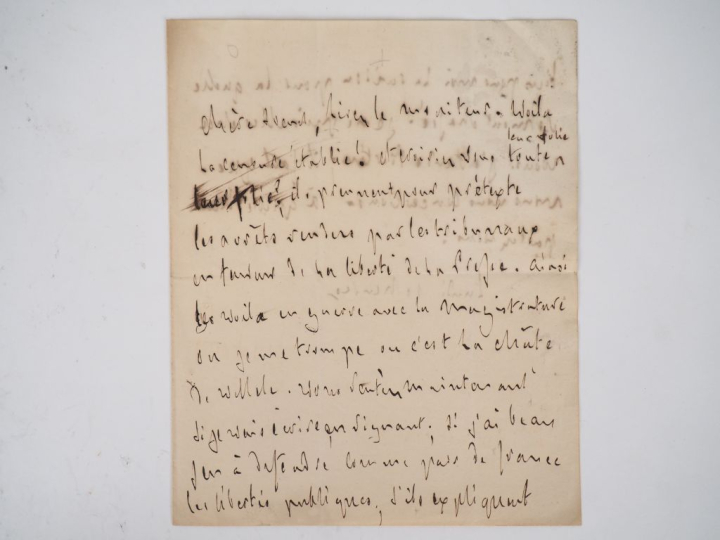 chère Amie, lisez le moniteur. Voila
la censure établie! et croiriez vous toute
leur folie
ils prennent pour prétexte
les arrêts rendus par les tribunaux
en faveur de la liberté de la Presse. ainsi
les voila en guerre avec la magistrature
ou je me trompe ou c'est la chûte
de villele. vous sentez maintenant
si je vais écrire, en signant. Si j'ai beau
jeu à défendre comme pair de france
les libertés publiques, s'ils expliquent